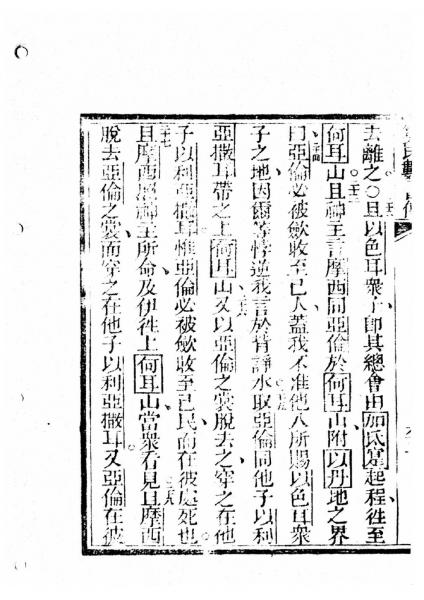 去離之○且以色耳衆子即其總會由加氏寔起程徃至
何耳山且神主言摩西同亞倫於何耳山附以丹地之界
曰亞倫必被歛收至己人蓋我不准他入所賜以色耳衆
子之地因爾等悖逆我言於背諍水取亞倫同他子以利
亞撒耳帶之上何耳山又以亞倫之裳脫去之穿之在他
子以利亞撒耳惟亞倫必被歛收至己民而在彼處死也
且摩西照神主所命及伊徃上何耳山當衆看見且摩西
脫去亞倫之裳而穿之在他子以利亞撒耳又亞倫在彼